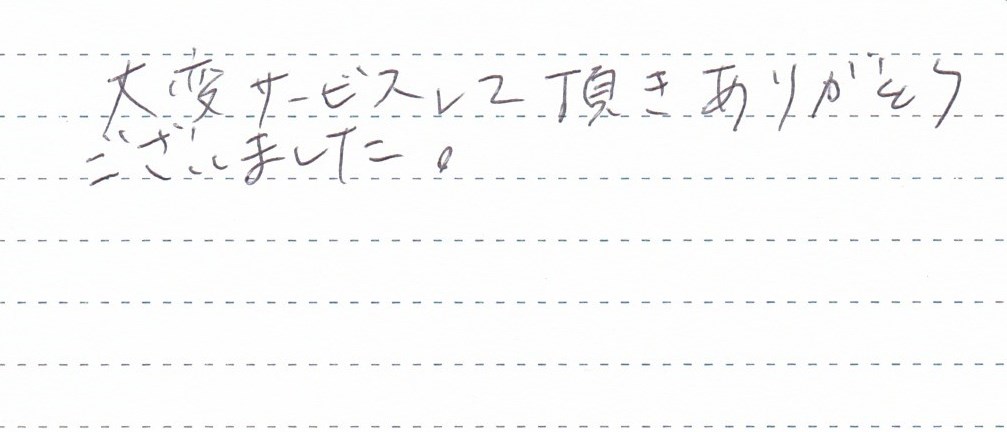 大変サービスして頂きありがとう
ございました。